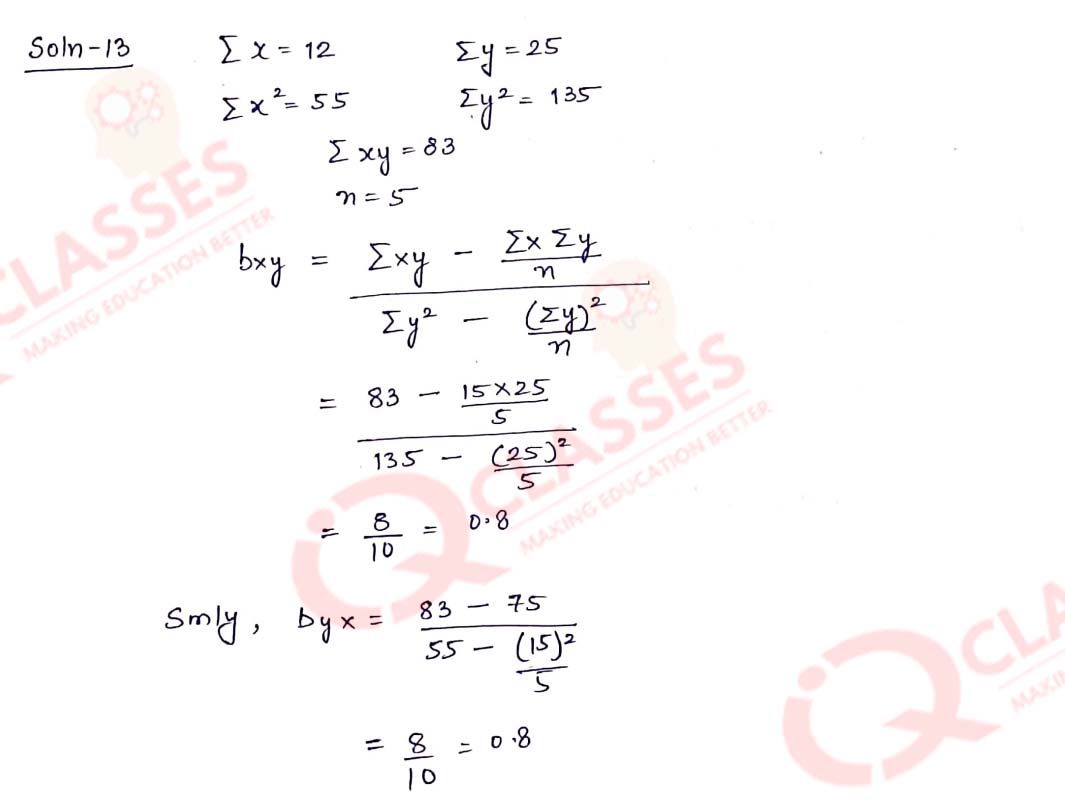 Soln-13 Σx = 12 Σy = 25
Σx² = 55 Σy² = 135
Σxy = 83
n = 5
bxy = (Σxy - (Σx Σy)/n) / (Σy² - (Σy)²/n)
= (83 - (15×25)/5) / (135 - (25)²/5)
= 8/10 = 0.8
Smly, byx = (83 - 75) / (55 - (15)²/5)
= 8/10 = 0.8
CLASSES
MAKING EDUCATION BETTER
IQ CLASSES
MAKING EDUCATION BETTER
IQ CLA
MAKIN